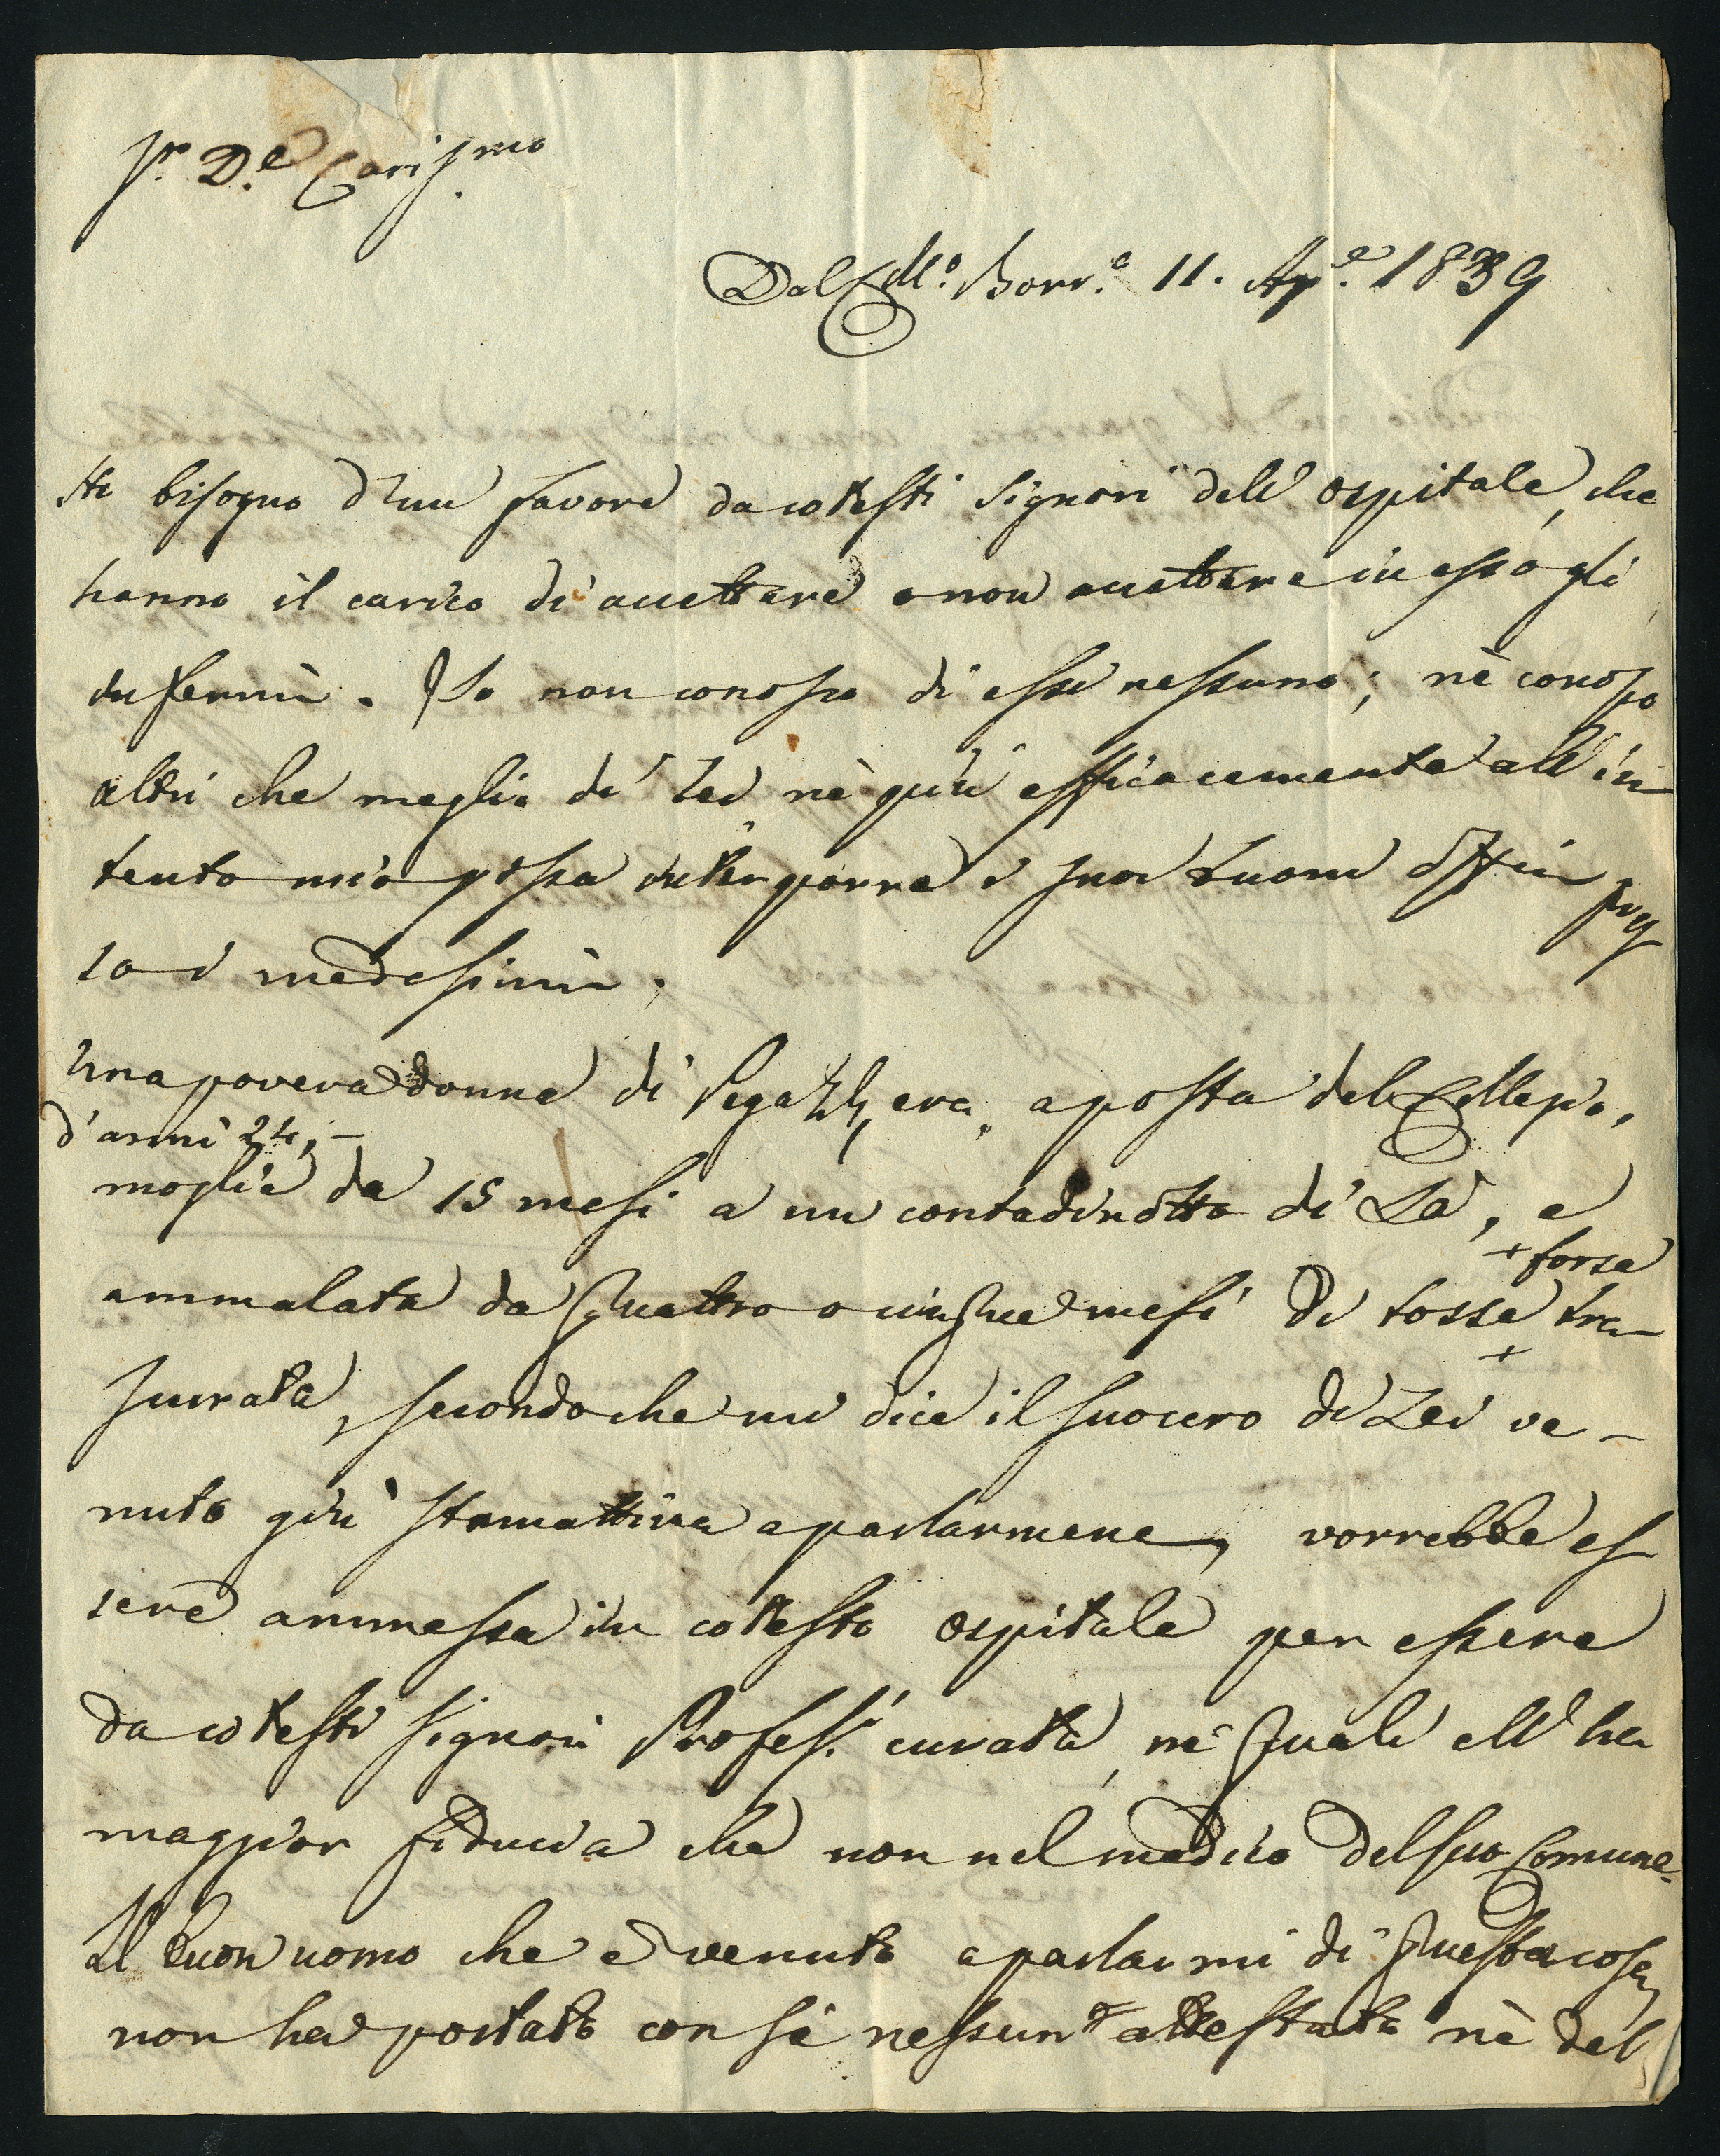 Sr. D.e Cariss.mo
Dal Coll.o Borr.o 11. Ap.e 1839
Ho bisogno d'un favore da cotesti Signori dell'ospitale, che
hanno il carico di accettare o non accettare in esso gli
infermi. Io non conosco di essi nessuno; nè conosco
altri che meglio di Lei nè più efficacemente all'in
tento mio possa interporre i suoi buoni officii pres
so i medesimi.
Una povera donna di Pegazzera, a posta del Collegio,
d'anni 24,
moglie da 15 mesi a un contadinotto di Là, e
+ forse
ammalata da quattro o cinque mesi di tosse tra-
+
scurata, secondo che mi dice il suocero di Lei ve-
nuto giù stamattina a parlarmene, vorrebbe es
sere ammessa in cotesto ospitale per essere
da cotesti Signori Profess.i curata, ne' quali ell'ha
maggior fiducia che non nel medico del suo Comune.
Il buon uomo che è venuto a parlarmi di questa cosa,
non ha portato con sè nessun attestato nè del